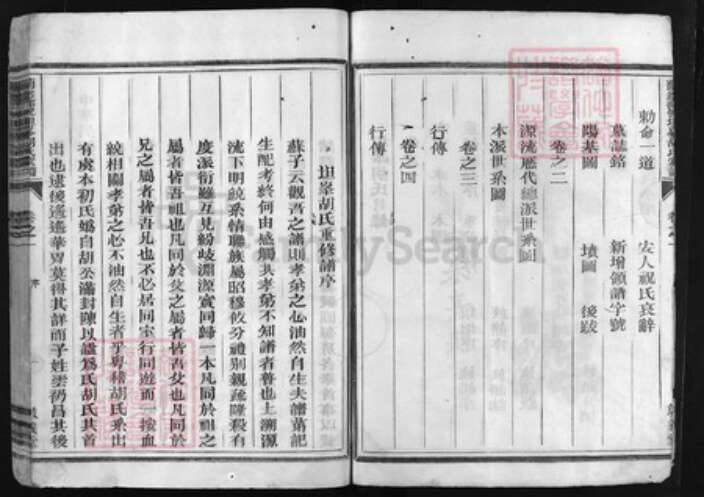 勅命一道　安人祝氏哀辭
墓誌銘　新增領譜字號
陽基圖　墳圖　後跋
卷之二
源流歷代總派世系圖
本派世系圖
卷之三
行傳
卷之四
行傳
坦峯胡氏重修譜序
蘇子云觀吾之譜則孝弟之心油然自生夫譜第記
生配考終何由感觸其孝弟不知譜者普也上溯源
流下明統系情聯族屬昭穆攸分禮別親疎隆殺有
度派衍雖互見紛歧淵源實同歸一本凡同於祖之
屬者皆吾祖也凡同於父之屬者皆吾父也凡同於
兄之屬者皆吾兄也不必居同室行同遊而一按血
統相關孝弟之心不油然自生者乎粵稽胡氏系出
有虞本初氏媯自胡公滿封陳以諡爲氏胡氏其首
出也逮後遙遙華冑莫得其詳而子姓雲礽昌其後
卷之一
序